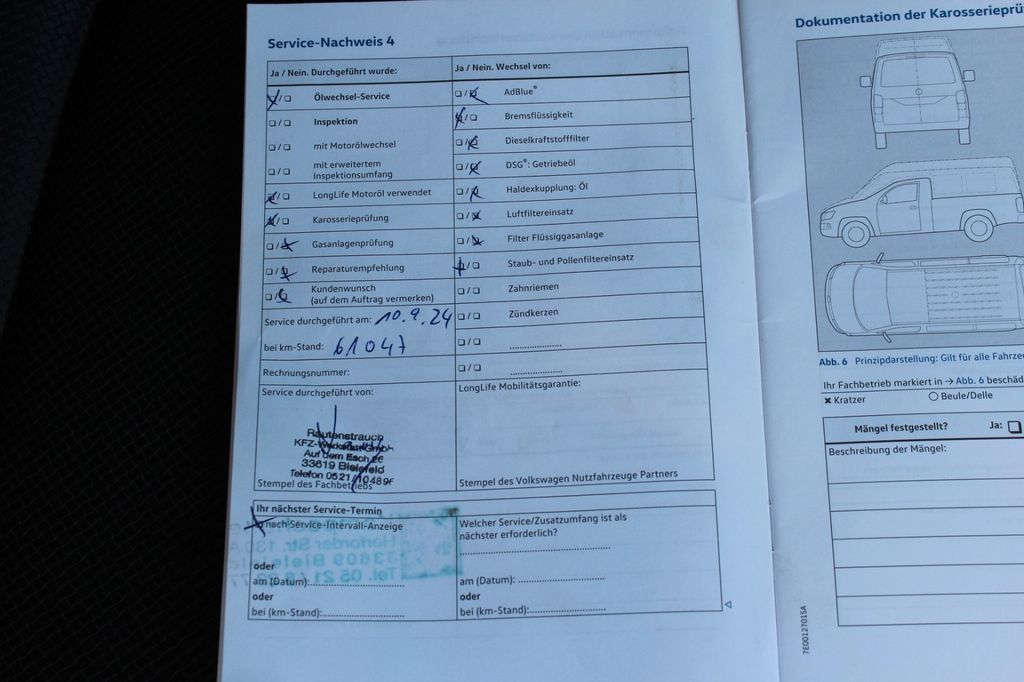 Service-Nachweis 4
Ja / Nein. Durchgeführt wurde:
Ölwechsel-Service
Inspektion
mit Motorölwechsel
mit erweitertem
Inspektionsumfang
LongLife Motoröl verwendet
Karosserieprüfung
Gasanlagenprüfung
Reparaturempfehlung
Kundenwunsch
(auf dem Auftrag vermerken)
Service durchgeführt am: 10.9.24
bei km-Stand: 61047
Rechnungsnummer:
Service durchgeführt von:
Rautenstrauch
KFZ-
Auf dem Esch
33619 Bielefeld
Telefon 0521/
Stempel des Fachbetriebs
Ja / Nein. Wechsel von:
AdBlue®
Bremsflüssigkeit
Dieselkraftstofffilter
DSG®: Getriebeöl
Haldexkupplung: Öl
Luftfiltereinsatz
Filter Flüssiggasanlage
Staub- und Pollenfiltereinsatz
Zahnriemen
Zündkerzen
LongLife Mobilitätsgarantie:
Stempel des Volkswagen Nutzfahrzeuge Partners
Ihr nächster Service-Termin
nach Service-Intervall-Anzeige
oder
am (Datum):
oder
bei (km-Stand):
Welcher Service/Zusatzumfang ist als
nächster erforderlich?
am (Datum):
oder
bei (km-Stand):
Dokumentation der Karosserieprü
Abb. 6 Prinzipdarstellung: Gilt für alle Fahrze
Ihr Fachbetrieb markiert in → Abb. 6 beschäd
Kratzer
Beule/Delle
Mängel festgestellt? Ja:
Beschreibung der Mängel:
7E0012701SA